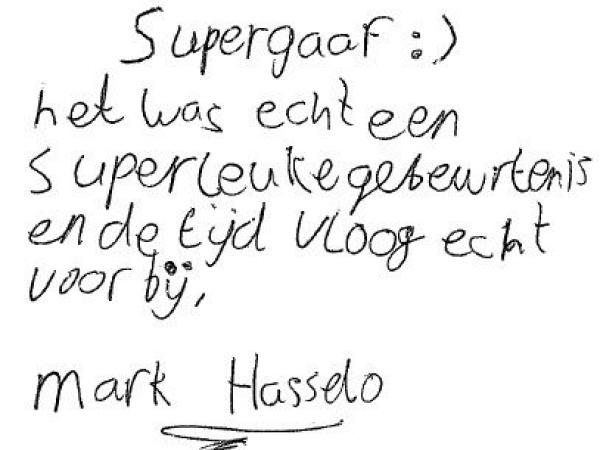 Supergaaf :)
het was echt een
superleuke gebeurtenis
en de tijd vloog echt
voorbij,
Mark Hasselo